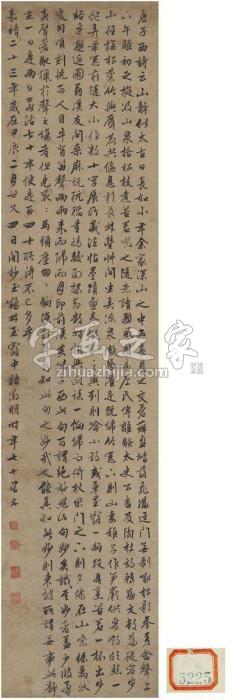 唐子西詩云山靜似太古日長如小年余家深山之中每春夏之交蒼蘚盈堦落花滿逕門無剝啄松影參差禽聲上
下午睡初足旋汲山泉拾松枝煮苦茗啜之隨意讀周易國風左氏傳離騷太史公書及陶杜詩韓蘇文數篇從容步
山徑撫松竹與麛犢共偃息於長林豐草間坐弄流泉漱齒濯足既歸竹窗下則山妻稚子作筍蕨供麥飯欣然一
飽弄筆窗前隨大小作數十字展所藏法帖墨蹟畫卷縱觀之興到則吟小詩或草玉露一兩段再烹苦茗一杯出步
溪邊邂逅園翁溪友問桑麻說秔稻量晴較雨探節數時相與劇談一餉歸而倚杖柴門之下則夕陽在山紫綠萬狀
變幻頃刻恍可人目牛背笛聲兩兩來歸而月印前溪矣味子西此句可謂妙絕然此句妙矣識其妙者蓋少彼牽
黃臂蒼馳獵於聲利之場者但見滾滾馬頭塵匆匆駒隙影耳烏知此句之妙哉人能真知此妙則東坡所謂無事此靜
坐一日是兩日若活七十年便是百四十所得不已多乎
嘉靖二十三年歲在甲辰二月廿又四日閒抄鶴林玉露中語徵明時年七十有五
字画之家
zihuazhijia.com
5225